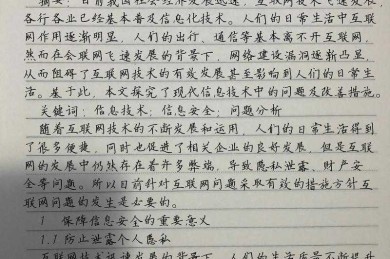 摘要：目前我国社会经济发展迅速，互联网技术飞速发展，
各行各业已经基本普及信息化技术。人们的日常生活中互联
网作用逐渐明显，人们的出行、通信等基本离不开互联网，
然而在会联网飞速发展的背景下，网络建设漏洞逐渐凸显，
从而阻碍了互联网技术的有效发展甚至影响到人们的日常生
活。基于此，本文探究了现代信息技术中的问题及改善措施。
关键词：信息技术；信息安全；问题分析
随着互联网技术的不断发展和运用，人们的日常生活得到
了很多便捷，同时也促进了相关企业的良好发展，但是互联
网的发展中仍然存在着许多弊端，导致隐私泄露、财产安
全等问题。所以目前针对互联网问题采取有效的措施方针互
联网问题的发生是必要的。
1 保障信息安全的重要意义
1.1防止泄露个人隐私
互联网技术迅速发展的背景下，人们的生活质量不断提升